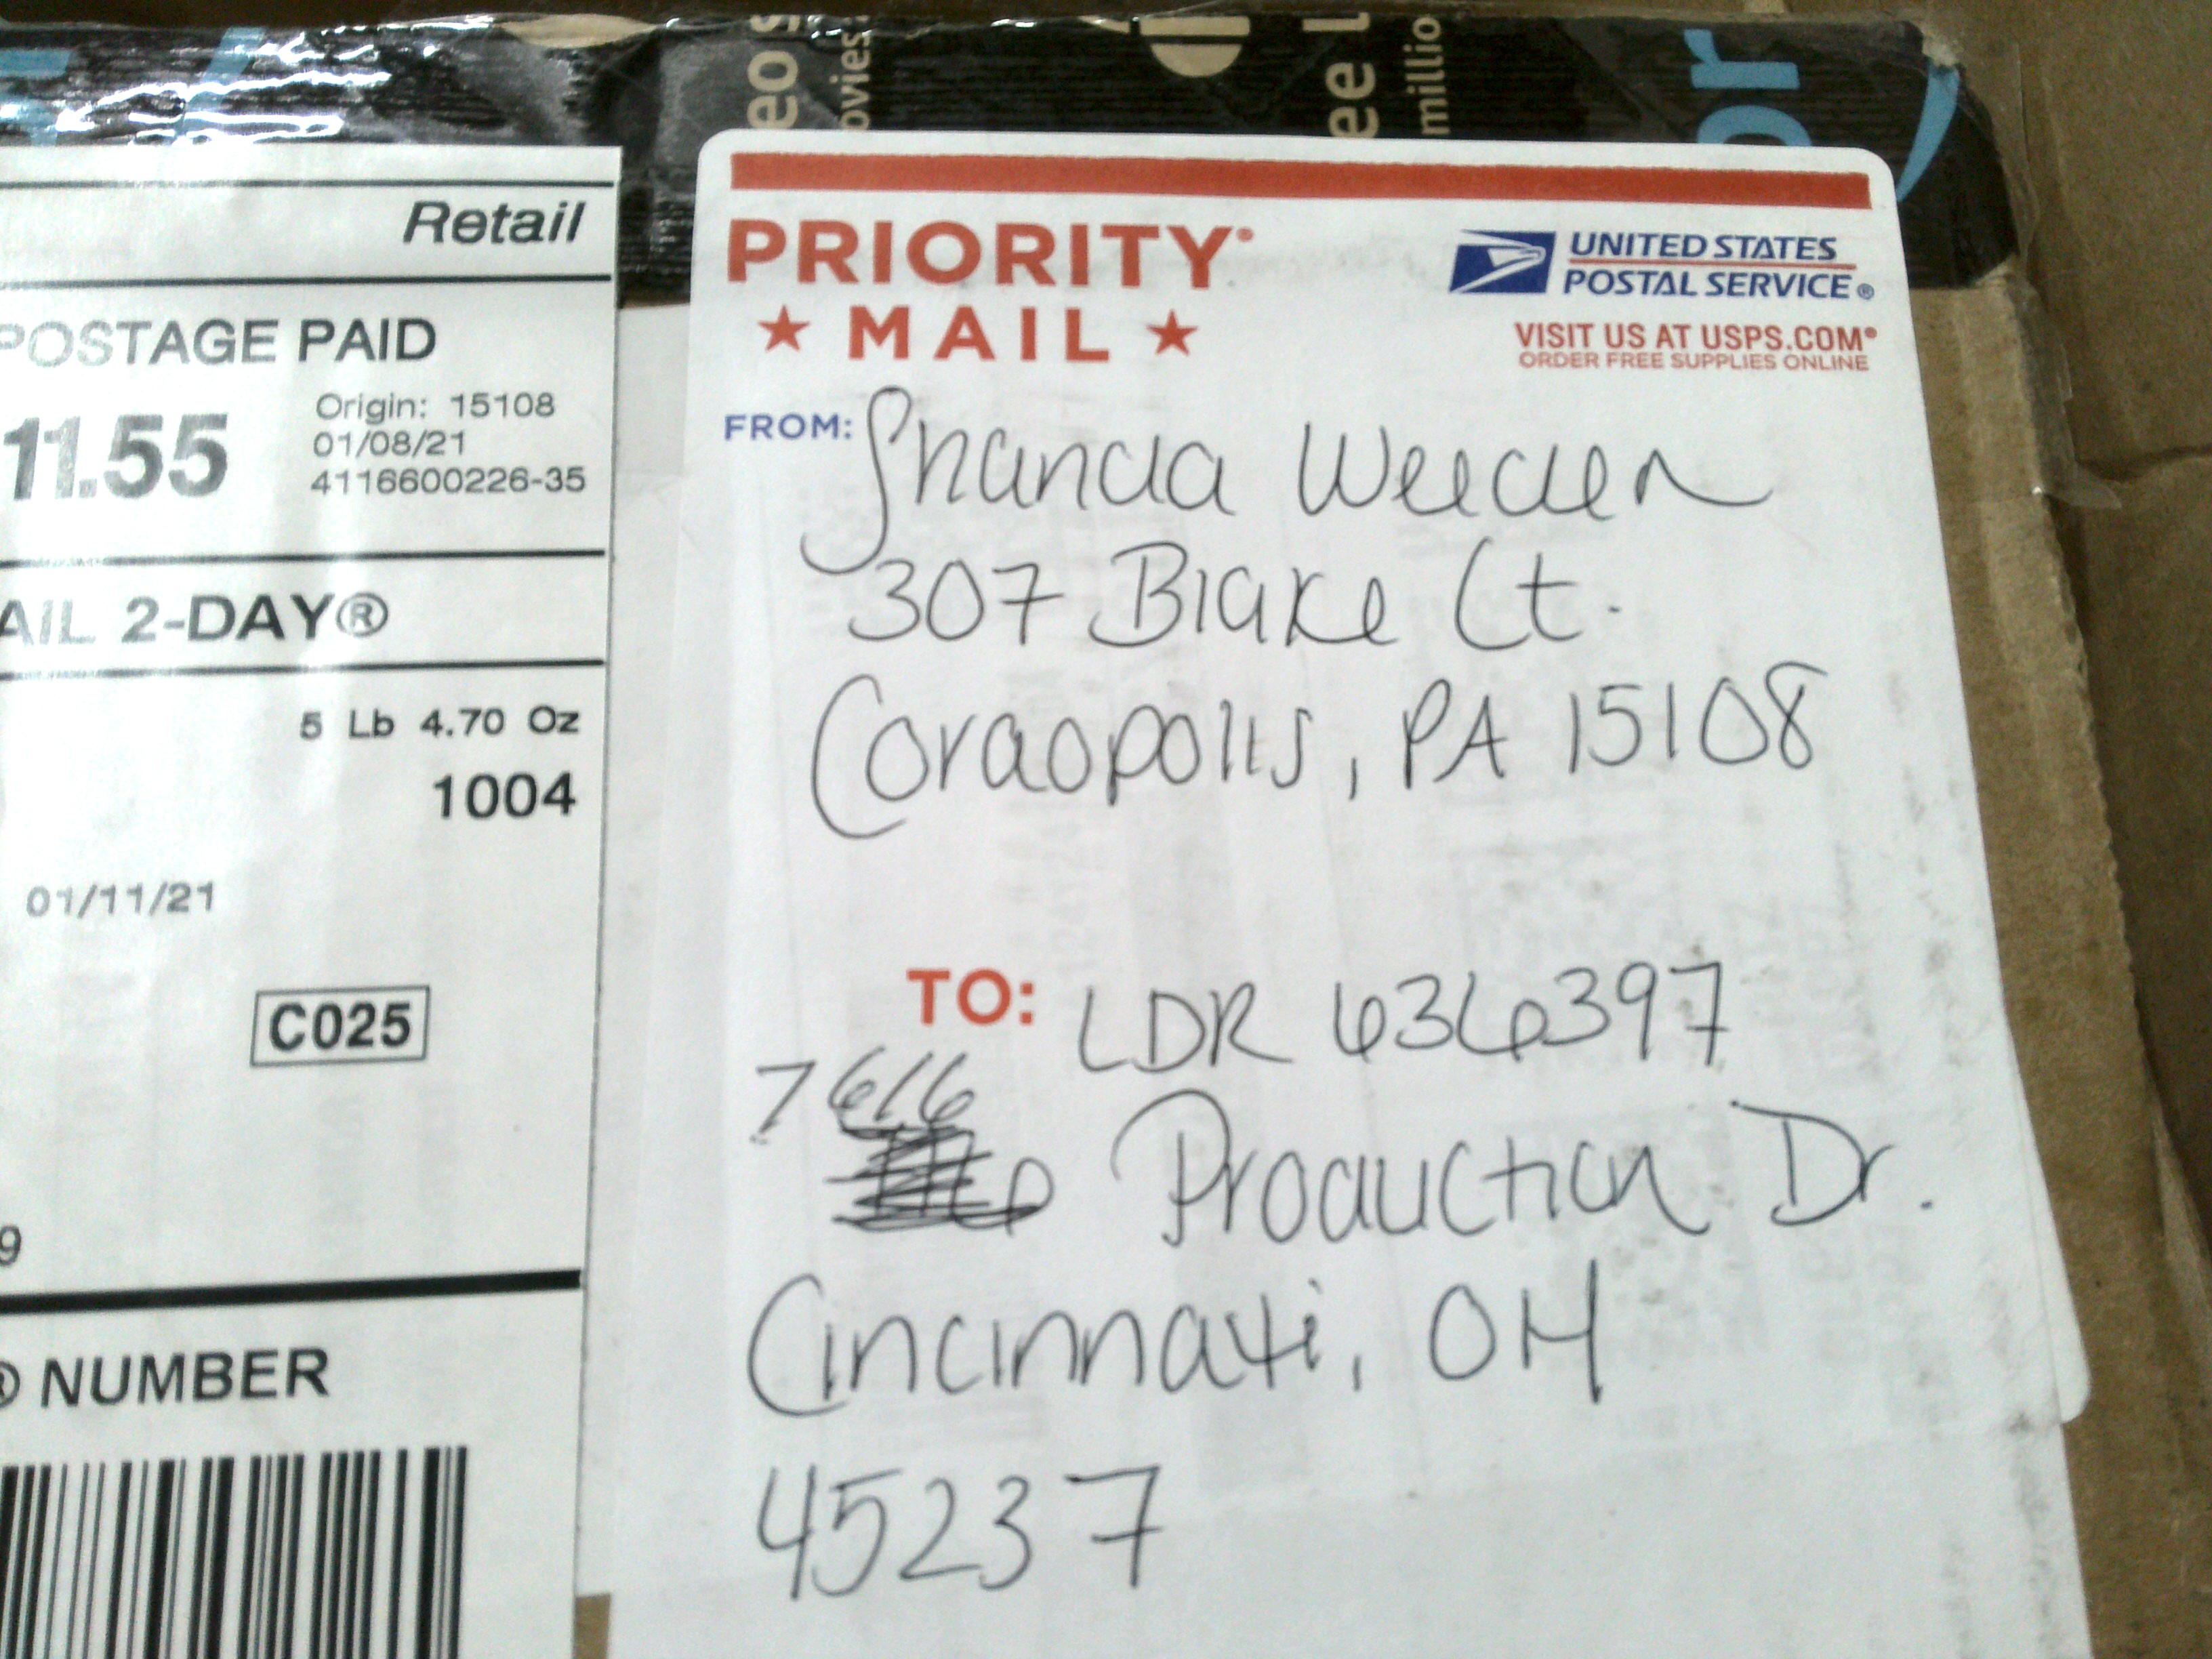 eo s
ovies
ee l
millio
or
Retail
POSTAGE PAID
11.55
Origin: 15108
01/08/21
4116600226-35
AIL 2-DAY®
5 Lb 4.70 Oz
1004
01/11/21
C025
9
® NUMBER
PRIORITY®
★ MAIL ★
UNITED STATES
POSTAL SERVICE®
VISIT US AT USPS.COM®
ORDER FREE SUPPLIES ONLINE
FROM: Shanda Weeden
307 Blake Ct.
Coraopolis, PA 15108
TO: LDR 636397
7616
Production Dr.
Cincinnati, OH
45237